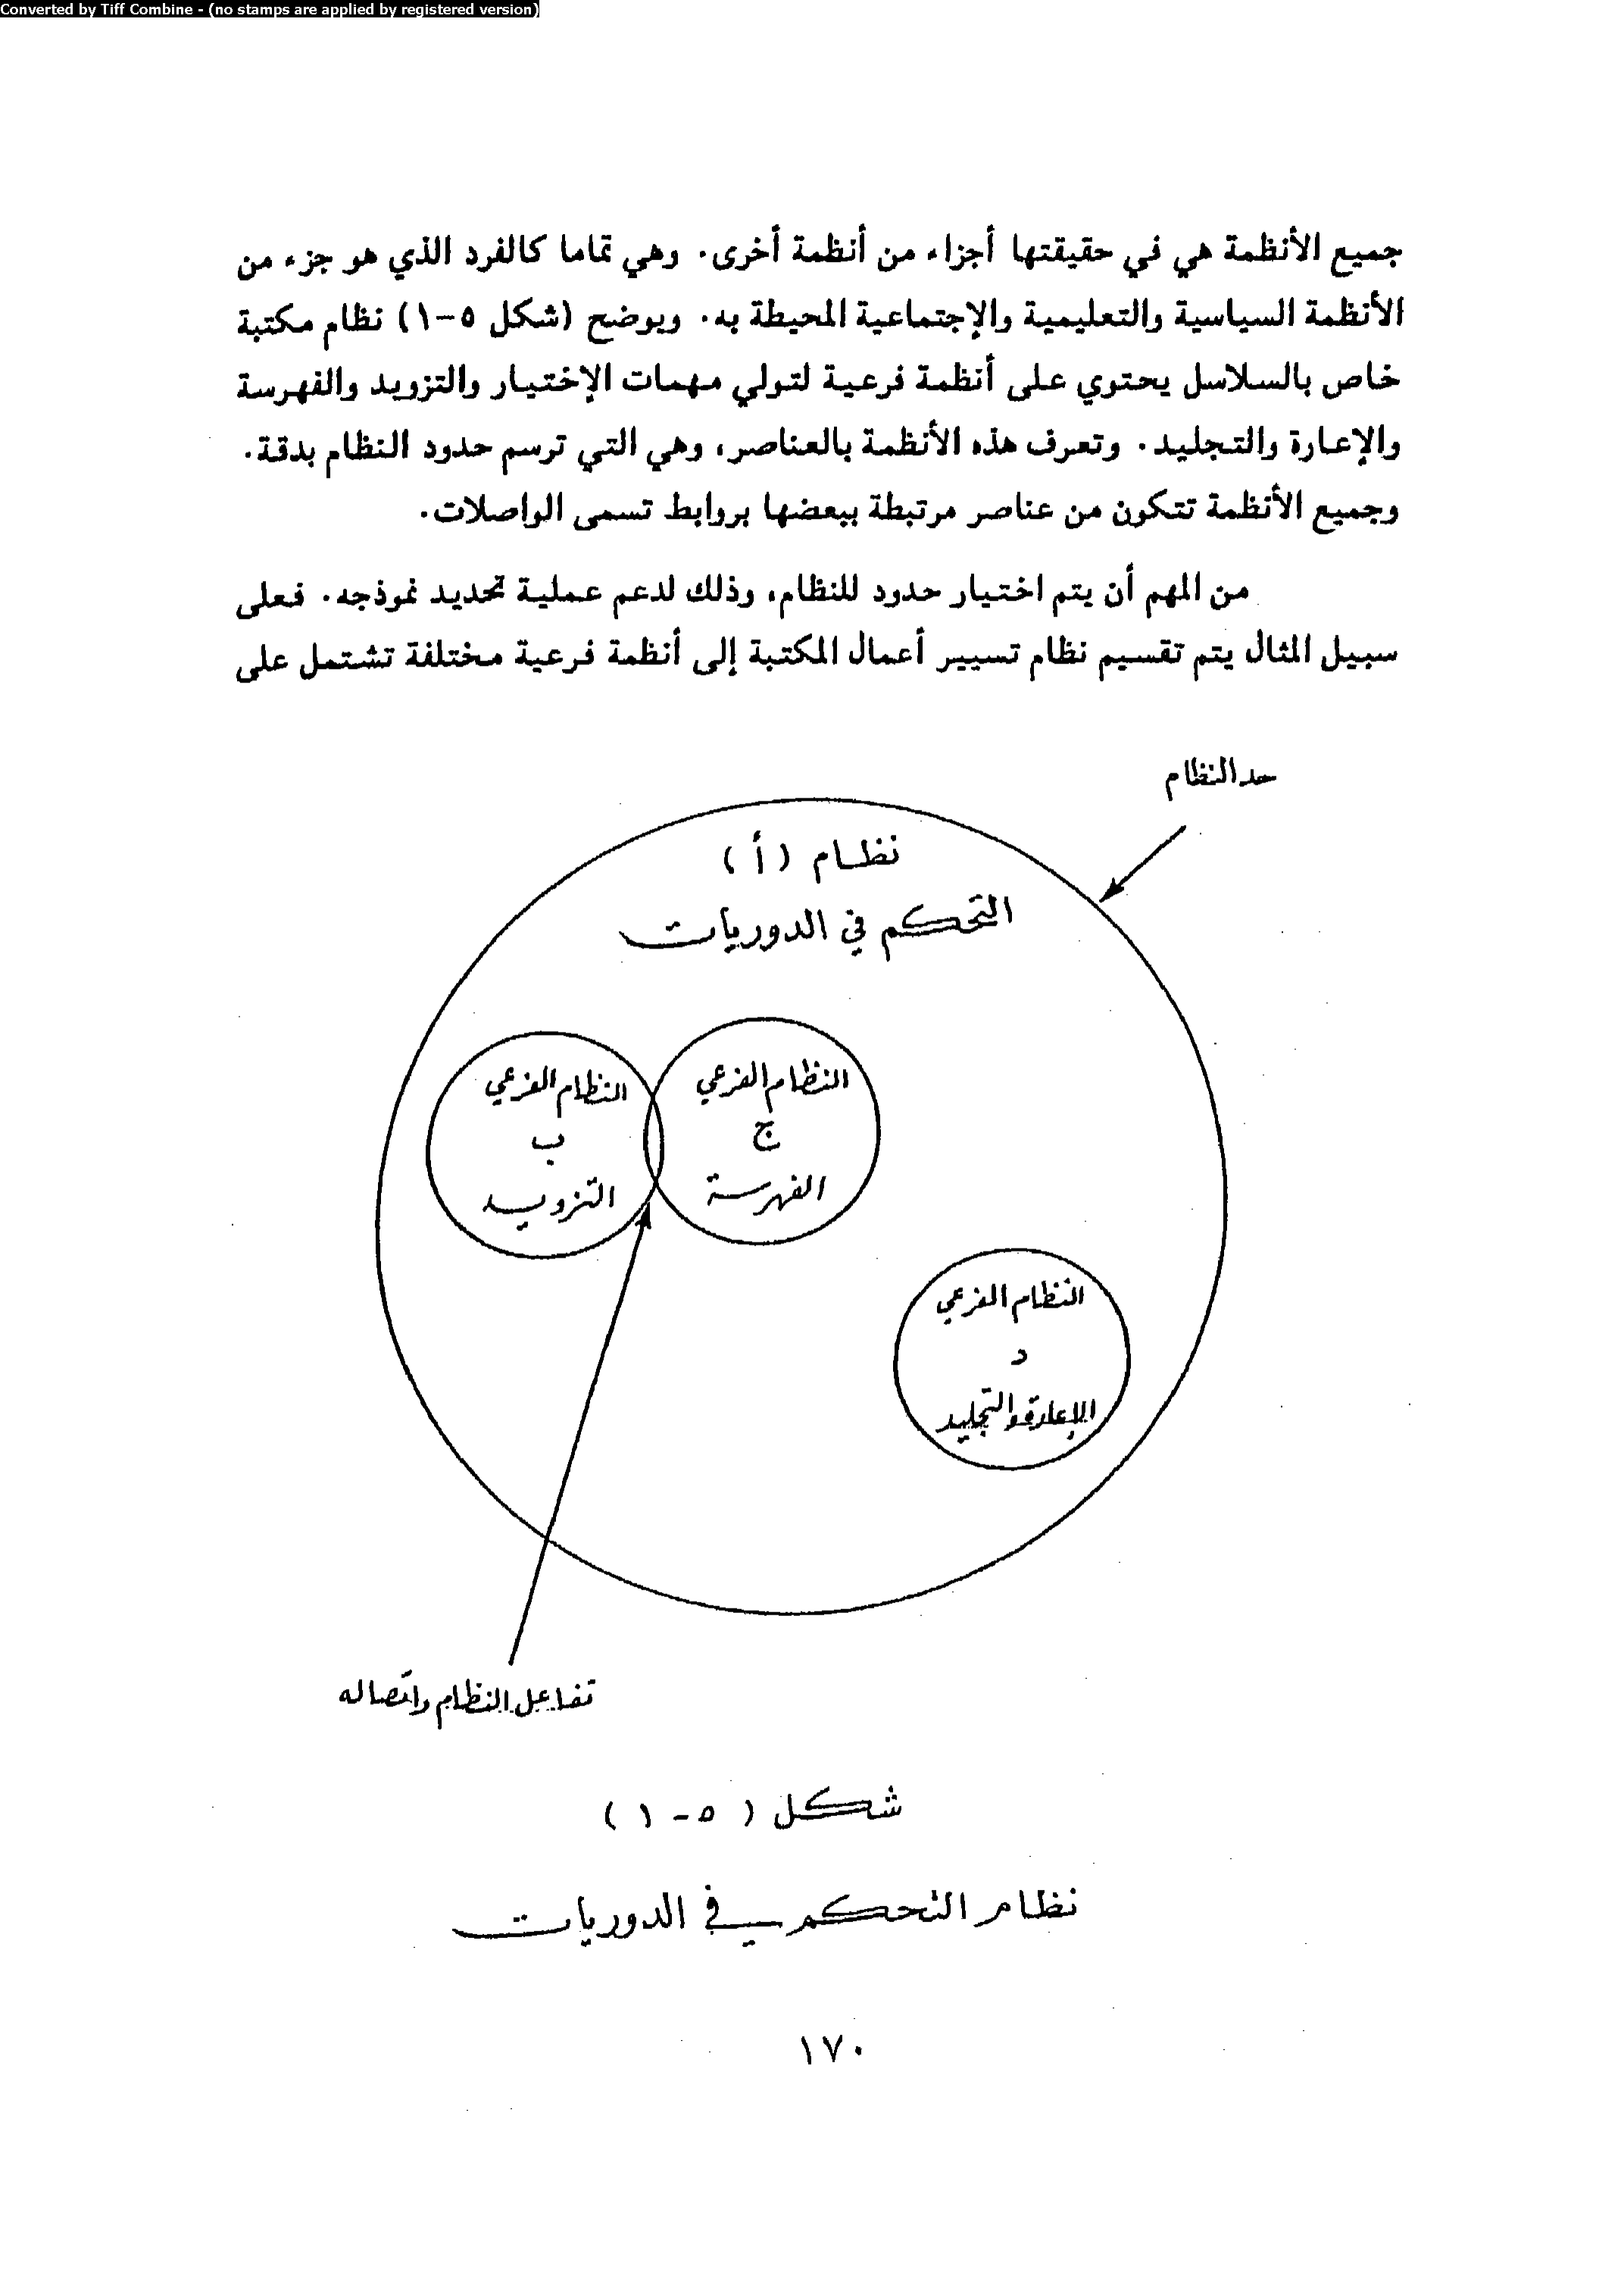 Converted by Tiff Combine - (no stamps are applied by registered version)
جميع الأنظمة هي في حقيقتها أجزاء من أنظمة أخرى. وهي تماما كالفرد الذي هو جزء من
الأنظمة السياسية والتعليمية والإجتماعية المحيطة به. ويوضح (شكل ٥-١) نظام مكتبة
خاص بالسلاسل يحتوي على أنظمة فرعية لتولي مهمات الإختيار والتزويد والفهرسة
والإعارة والتجليد. وتعرف هذه الأنظمة بالعناصر، وهي التي ترسم حدود النظام بدقة.
وجميع الأنظمة تتكون من عناصر مرتبطة ببعضها بروابط تسمى الواصلات.
من المهم أن يتم اختيار حدود للنظام، وذلك لدعم عملية تحديد نموذجه. فعلى
سبيل المثال يتم تقسيم نظام تسيير أعمال المكتبة إلى أنظمة فرعية مختلفة تشتمل على
حد النظام
نظام (أ)
التحكم في الدوريات
النظام الفرعي
ج
الفهرسة
النظام الفرعي
ب
التزويد
النظام الفرعي
د
الإعارة والتجليد
تفاعل النظام واتصاله
شكل (٥-١)
نظام التحكم في الدوريات
١٧٠